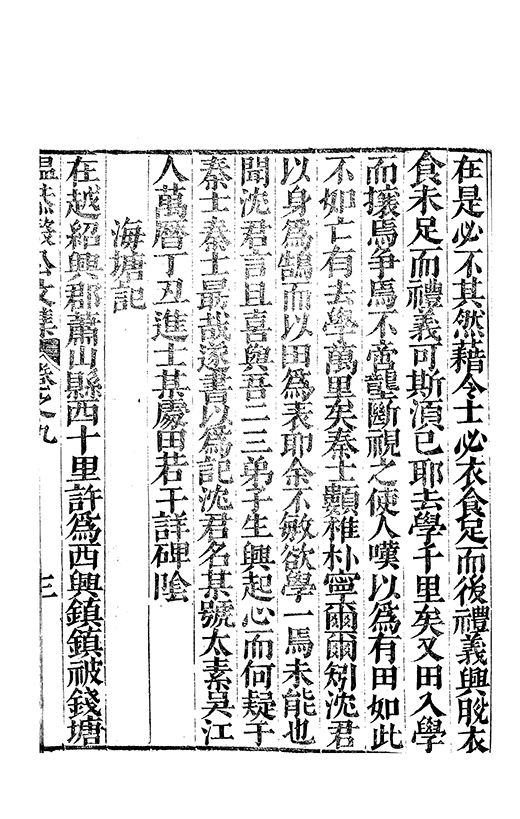 在是必不其然藉令士必衣食足而後禮義興脫衣
食未足而禮義可斯須已耶去學千里矣又田入學
而攘焉爭焉不啻龍斷視之使人嘆以為有田如此
不如亡有去學萬里矣秦士顓椎朴寧爾爾矧沈君
以身為鵠而以田為表耶余不敏欲學一焉未能也
聞沈君言且喜與吾二三弟子生興起心而何疑于
秦士秦士最哉遂書以為記沈君名某號太素吳江
人萬曆丁丑進士某處田若干詳碑陰
海塘記
在越紹興郡蕭山縣西十里許為西興鎮鎮被錢塘
溫恭毅公文集 卷之九 三